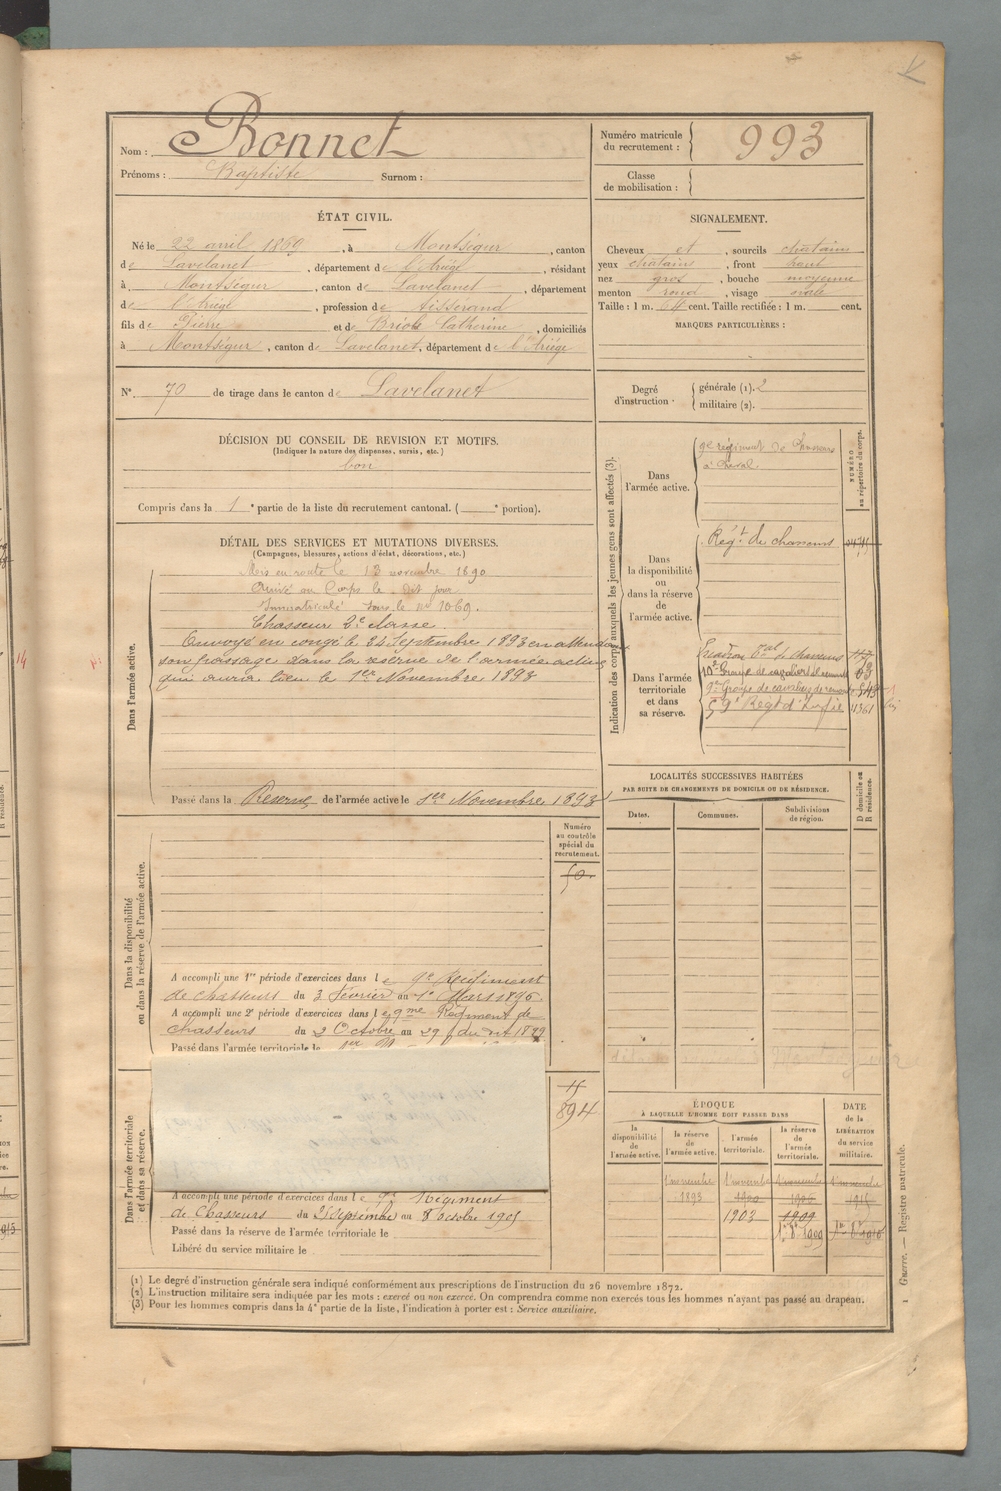 Nom : Bonnet
Prénoms : Baptiste Surnom :
Numéro matricule du recrutement : 993
Classe de mobilisation :
ÉTAT CIVIL.
Né le 22 avril 1869, à Montségur, canton
de Lavelanet, département de l'Ariège, résidant
à Montségur, canton de Lavelanet, département
de l'Ariège, profession de tisserand
fils de Pierre et de Catherine, domiciliés
à Montségur, canton de Lavelanet, département de l'Ariège
N° 70 de tirage dans le canton de Lavelanet
SIGNALEMENT.
Cheveux et, sourcils chatains
yeux chatains, front haut
nez gros, bouche moyenne
menton rond, visage ovale
Taille : 1 m. 64 cent. Taille rectifiée : 1 m. cent.
MARQUES PARTICULIÈRES :
Degré d'instruction. générale (1). 2
militaire (2).
DÉCISION DU CONSEIL DE REVISION ET MOTIFS.
(Indiquer la nature des dispenses, sursis, etc.)
bon
Compris dans la 1e partie de la liste du recrutement cantonal. ( e portion).
DÉTAIL DES SERVICES ET MUTATIONS DIVERSES.
(Campagnes, blessures, actions d'éclat, décorations, etc.)
Dans l'armée active.
Mis en route le 13 novembre 1890
Arrivé au Corps le dit jour
Immatriculé sous le n° 1069.
Chasseur 2e classe.
Envoyé en congé le 24 Septembre 1893 en attendant
son passage dans la réserve de l'armée active
qui aura lieu le 1er Novembre 1893
Passé dans la Réserve de l'armée active le 1er Novembre 1893
Indication des corps auxquels les jeunes gens sont affectés (3).
NUMÉRO au répertoire du corps.
Dans l'armée active.
9e régiment de Chasseurs
à cheval
Dans la disponibilité ou dans la réserve de l'armée active.
Régt de chasseurs
Dans l'armée territoriale et dans sa réserve.
Escadron tal de chasseurs
10e Groupe de cavaliers de remonte 63
9e Groupe de cavaliers de remonte 543
59e Régt d'Inf 11361
LOCALITÉS SUCCESSIVES HABITÉES
PAR SUITE DE CHANGEMENTS DE DOMICILE OU DE RÉSIDENCE.
Dates. Communes. Subdivisions de région. D domicile ou R résidence.
Dans la disponibilité ou dans la réserve de l'armée active.
Numéro au contrôle spécial du recrutement.
50
A accompli une 1re période d'exercices dans le 9e Régiment
de chasseurs du 3 février au 1er Mars 1896.
A accompli une 2e période d'exercices dans le 9me Régiment de
chasseurs du 2 Octobre au 29 du dit 1899
Passé dans l'armée territoriale le
894
Dans l'armée territoriale et dans sa réserve.
A accompli une période d'exercices dans le 9e Régiment
de Chasseurs du Septembre au 8 octobre 1905
Passé dans la réserve de l'armée territoriale le
Libéré du service militaire le
ÉPOQUE
À LAQUELLE L'HOMME DOIT PASSER DANS
DATE de la LIBÉRATION du service militaire.
la disponibilité de l'armée active. la réserve de l'armée active. l'armée territoriale. la réserve de l'armée territoriale.
1 novembre 1 novembre 1 novembre 1 novembre
1893 1900 1906 1915
1903 1909
(1) Le degré d'instruction générale sera indiqué conformément aux prescriptions de l'instruction du 26 novembre 1872.
(2) L'instruction militaire sera indiquée par les mots : exercé ou non exercé. On comprendra comme non exercés tous les hommes n'ayant pas passé au drapeau.
(3) Pour les hommes compris dans la 4e partie de la liste, l'indication à porter est : Service auxiliaire.
1 Guerre. — Registre matricule.